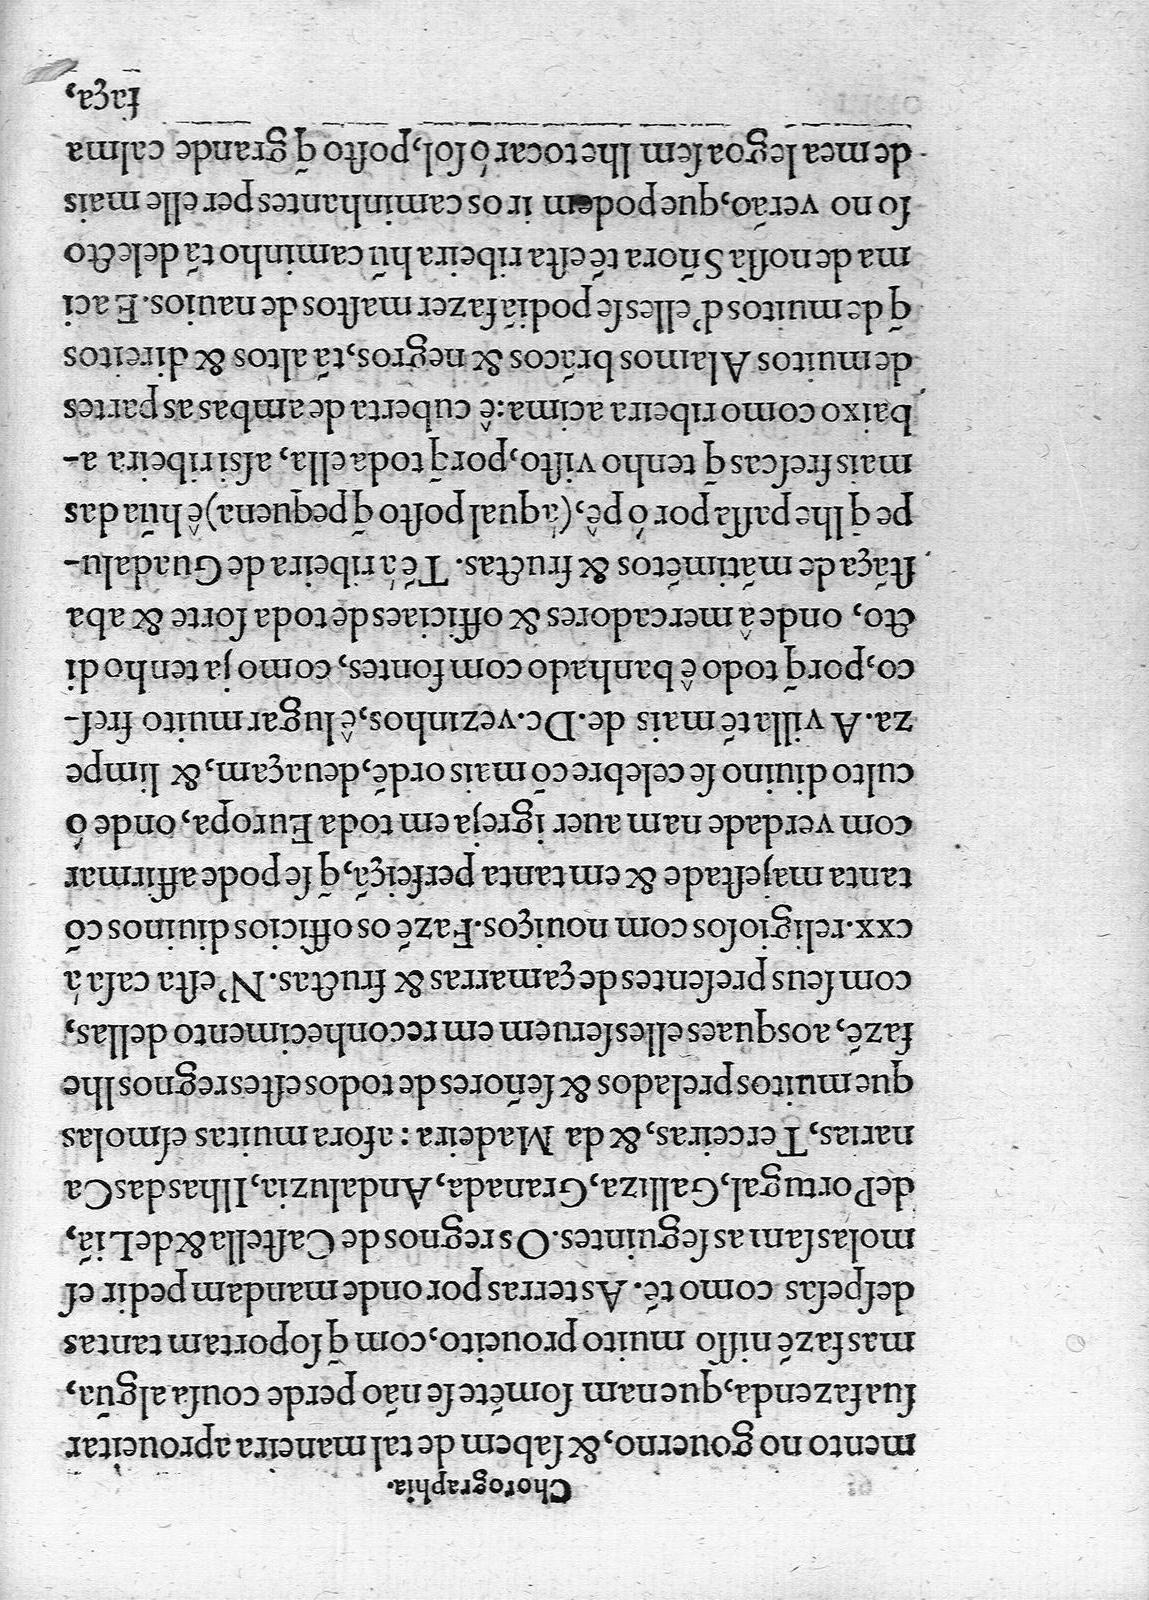 Chorographia.
mento no gouerno, & ſabem de tal maneira aproueitar
ſua fazenda, que nam ſomẽte ſe não perde couſa algũa,
mas fazẽ niſſo muito proueito, com q̃ ſoportam tantas
deſpeſas como tẽ. As terras por onde mandam pedir eſ
molas ſam as ſeguintes. Os regnos de Caſtella & de Liã,
de Portugal, Galliza, Granada, Andaluzia, Ilhas das Ca
narias, Terceiras, & da Madeira: afora muitas eſmolas
que muitos prelados & ſeñores de todos eſtes regnos lhe
fazẽ, aos quaes elles ſeruem em reconhecimento dellas,
com ſeus preſentes de çamarras & fructas. N'eſta caſa á
cxx. religioſos com nouiços. Fazẽ os officios diuinos cõ
tanta majeſtade & em tanta perfeiçã, q̃ ſe pode affirmar
com verdade nam auer igreja em toda Europa, onde ó
culto diuino ſe celebre cõ mais ordẽ, deuaçam, & limpe
za. A villa tẽ mais de. Dc. vezinhos, ê lugar muito freſ-
co, porq̃ todo ê banhado com fontes, como ja tenho di
cto, onde â mercadores & officiaes de toda ſorte & aba
ſtãça de mãtimẽtos & fructas. Tẽ á ribeira de Guadalu-
pe q̃ lhe paſſa por ó pê, (á qual poſto q̃ pequena) ê hũa das
mais freſcas q̃ tenho viſto, porq̃ toda ella, aſsi ribeira a-
baixo como ribeira acima: ê cuberta de ambas as partes
de muitos Alamos brãcos & negros, tã altos & direitos
q̃ de muitos d'elles ſe podiã fazer maſtos de nauios. E aci
ma de noſſa Sñora tẽ eſta ribeira hũ caminho tã delecto
ſo no verão, que podem ir os caminhantes per elle mais
de mea legoa ſem lhe tocar ó ſol, poſto q̃ grande calma
faça,